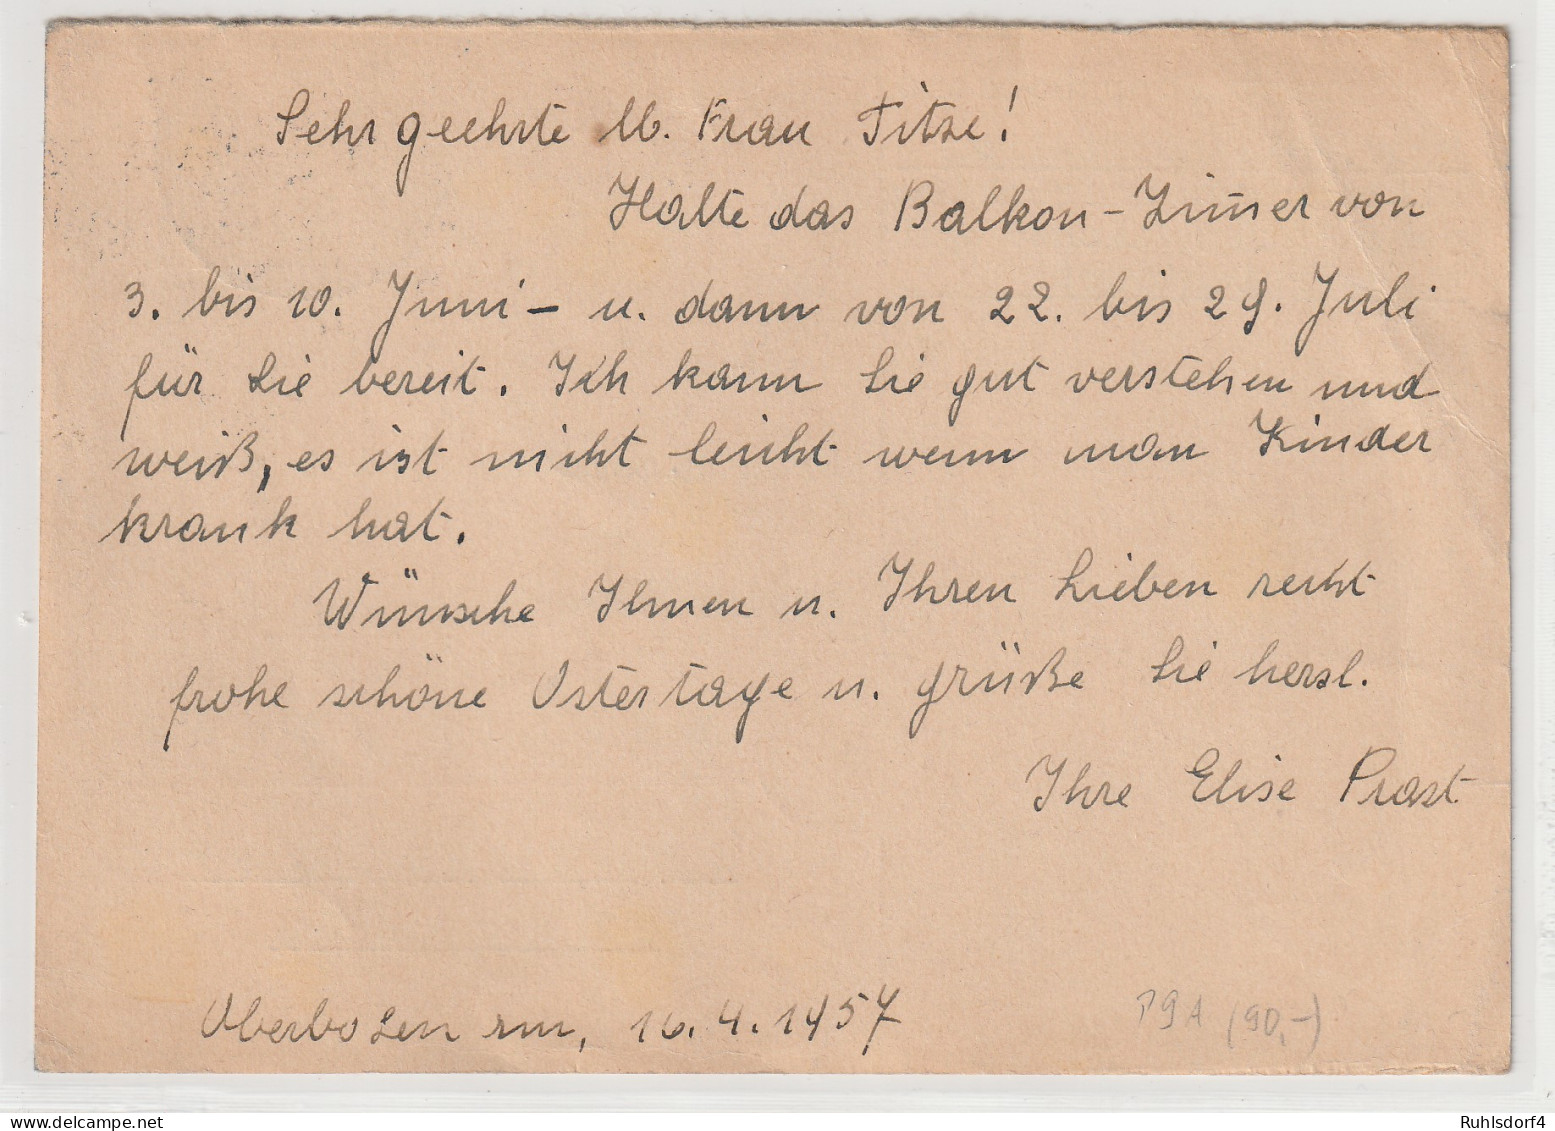 Sehr geehrte lb. Frau Titze!
Halte das Balkon-Zim̄er von
3. bis 10. Juni – u. dann von 22. bis 29. Juli
für Sie bereit. Ich kann Sie gut verstehen und
weiß, es ist nicht leicht wenn man Kinder
krank hat.
Wünsche Ihnen u. Ihren Lieben recht
frohe schöne Ostertage u. grüße Sie herzl.
Ihre Elise Prast
Oberbozen am, 16.4.1957
P9A (90,-)
Ruhlsdorf4